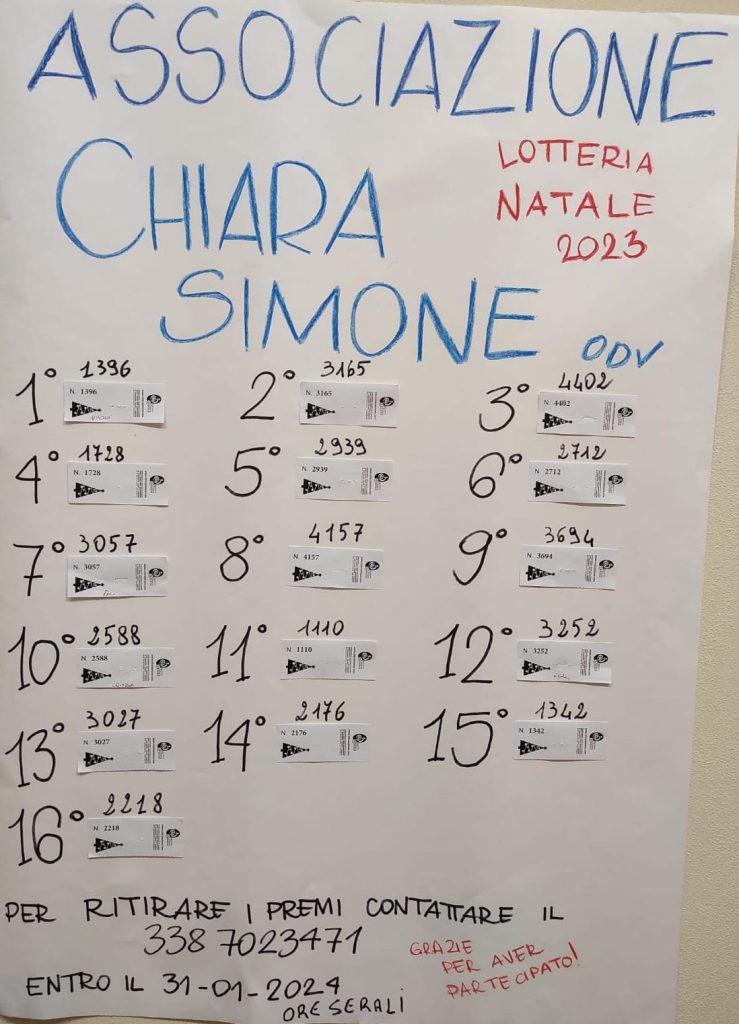 ASSOCIAZIONE
CHIARA
LOTTERIA
NATALE
2023
SIMONE ODV
1° 1396
N. 1396
2° 3165
N. 3165
3° 4402
N. 4402
4° 1728
N. 1728
5° 2939
N. 2939
6° 2712
N. 2712
7° 3057
N. 3057
8° 4157
N. 4157
9° 3694
N. 3694
10° 2588
N. 2588
11° 1110
N. 1110
12° 3252
N. 3252
13° 3027
N. 3027
14° 2176
N. 2176
15° 1342
N. 1342
16° 2218
N. 2218
PER RITIRARE I PREMI CONTATTARE IL
338 7023471
ENTRO IL 31-01-2024
ORE SERALI
GRAZIE
PER AVER
PARTECIPATO!